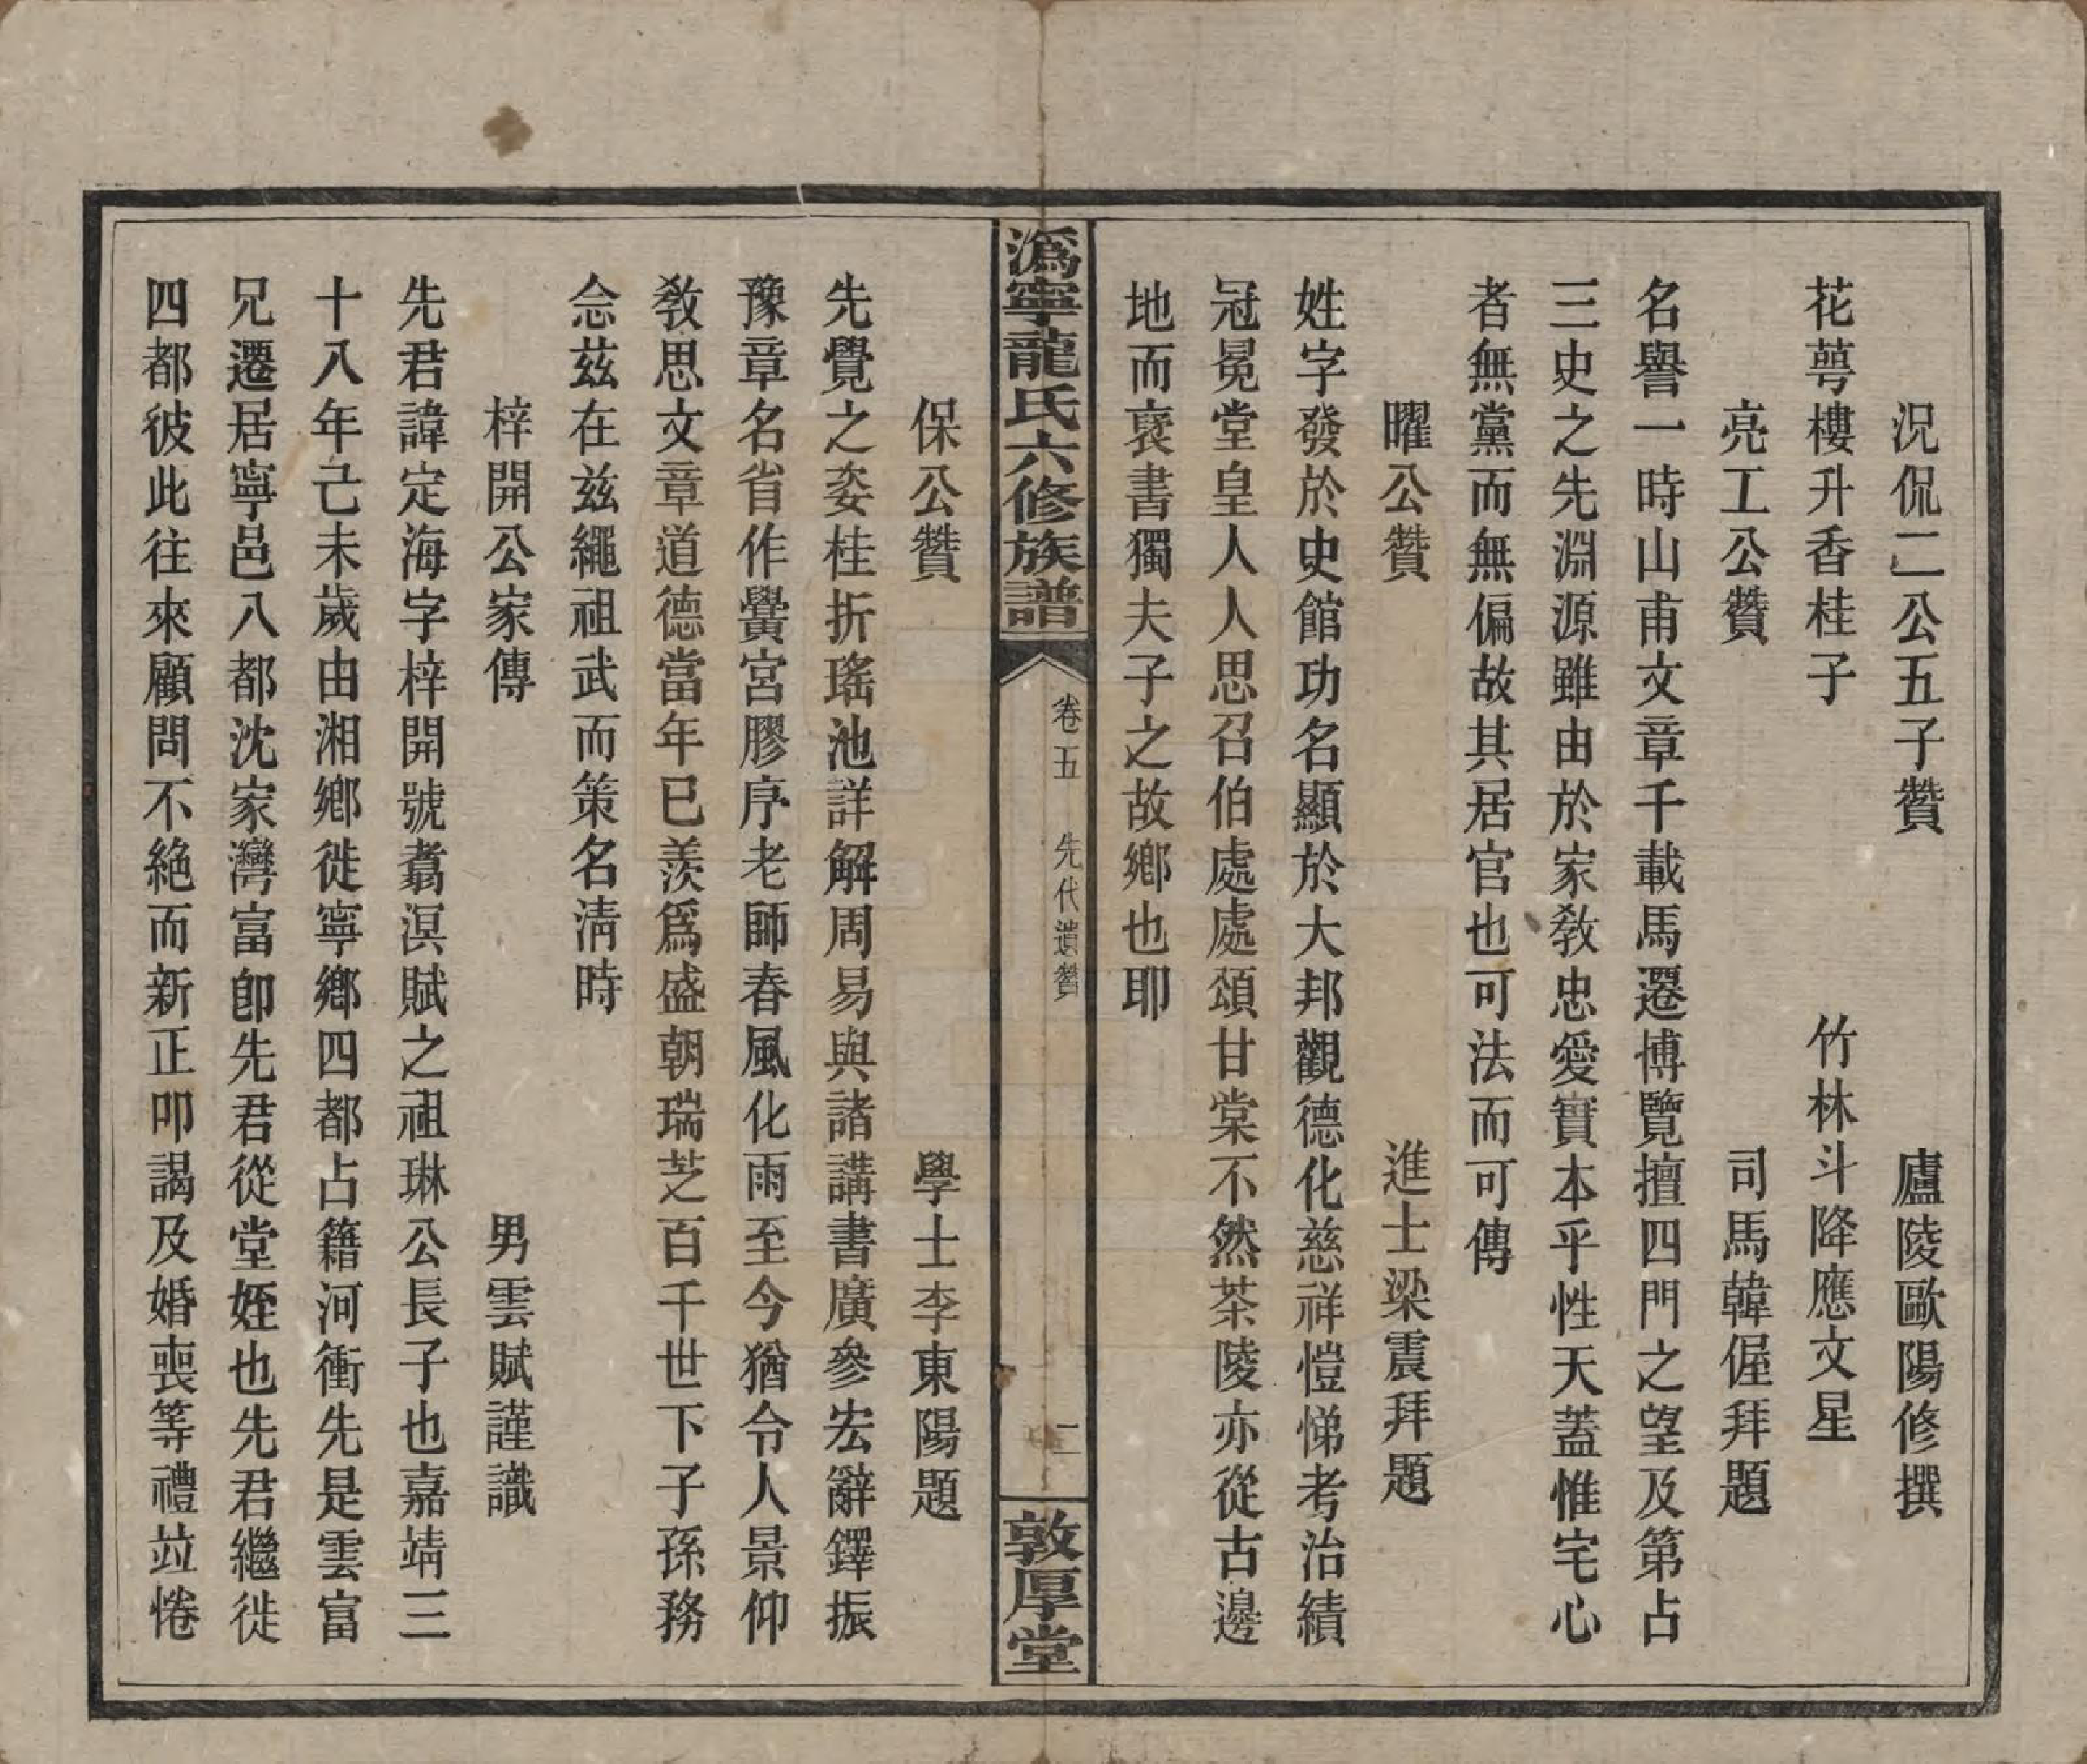 況侃二公五子贊　廬陵歐陽修撰
花萼樓升香桂子　竹林斗降應文星
亮工公贊　司馬韓偓拜題
名譽一時山甫文章千載馬遷博覽擅四門之望及第占
三史之先淵源雖由於家敎忠愛實本乎性天蓋惟宅心
者無黨而無偏故其居官也可法而可傳
曜公贊　進士梁震拜題
姓字發於史館功名顯於大邦觀德化慈祥愷悌考治績
冠冕堂皇人人思召伯處處頌甘棠不然茶陵亦從古邊
地而裦書獨夫子之故鄉也耶
溈寧龍氏六修族譜
卷五　先代遺贊
二
敦厚堂
保公贊　學士李東陽題
先覺之姿桂折瑤池詳解周易與諸講書廣參宏辭鐸振
豫章名省作黌宮膠序老師春風化雨至今猶令人景仰
敎思文章道德當年已羨爲盛朝瑞芝百千世下子孫務
念茲在茲繩祖武而策名淸時
梓開公家傳　男雲賦謹識
先君諱定海字梓開號翥溟賦之祖琳公長子也嘉靖三
十八年己未歲由湘鄉徙寧鄉四都占籍河衝先是雲富
兄遷居寧邑八都沈家灣富卽先君從堂姪也先君繼徙
四都彼此往來顧問不絕而新正叩謁及婚喪等禮竝惓